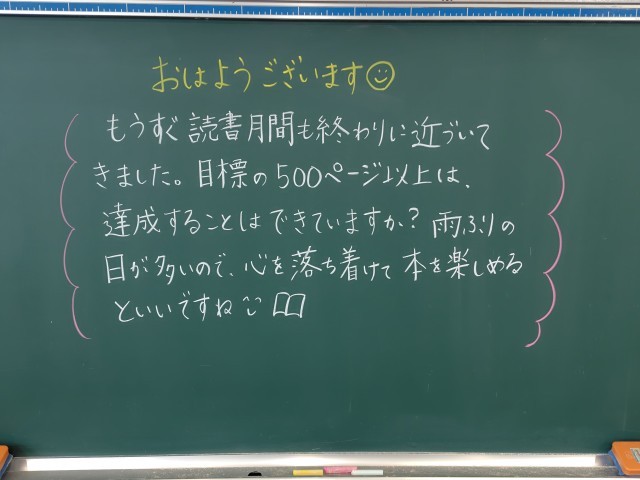 おはようございます☺
もうすぐ読書月間も終わりに近づいて
きました。目標の500ページ以上は、
達成することはできていますか？雨ふりの
日が多いので、心を落ち着けて本を楽しめる
といいですね